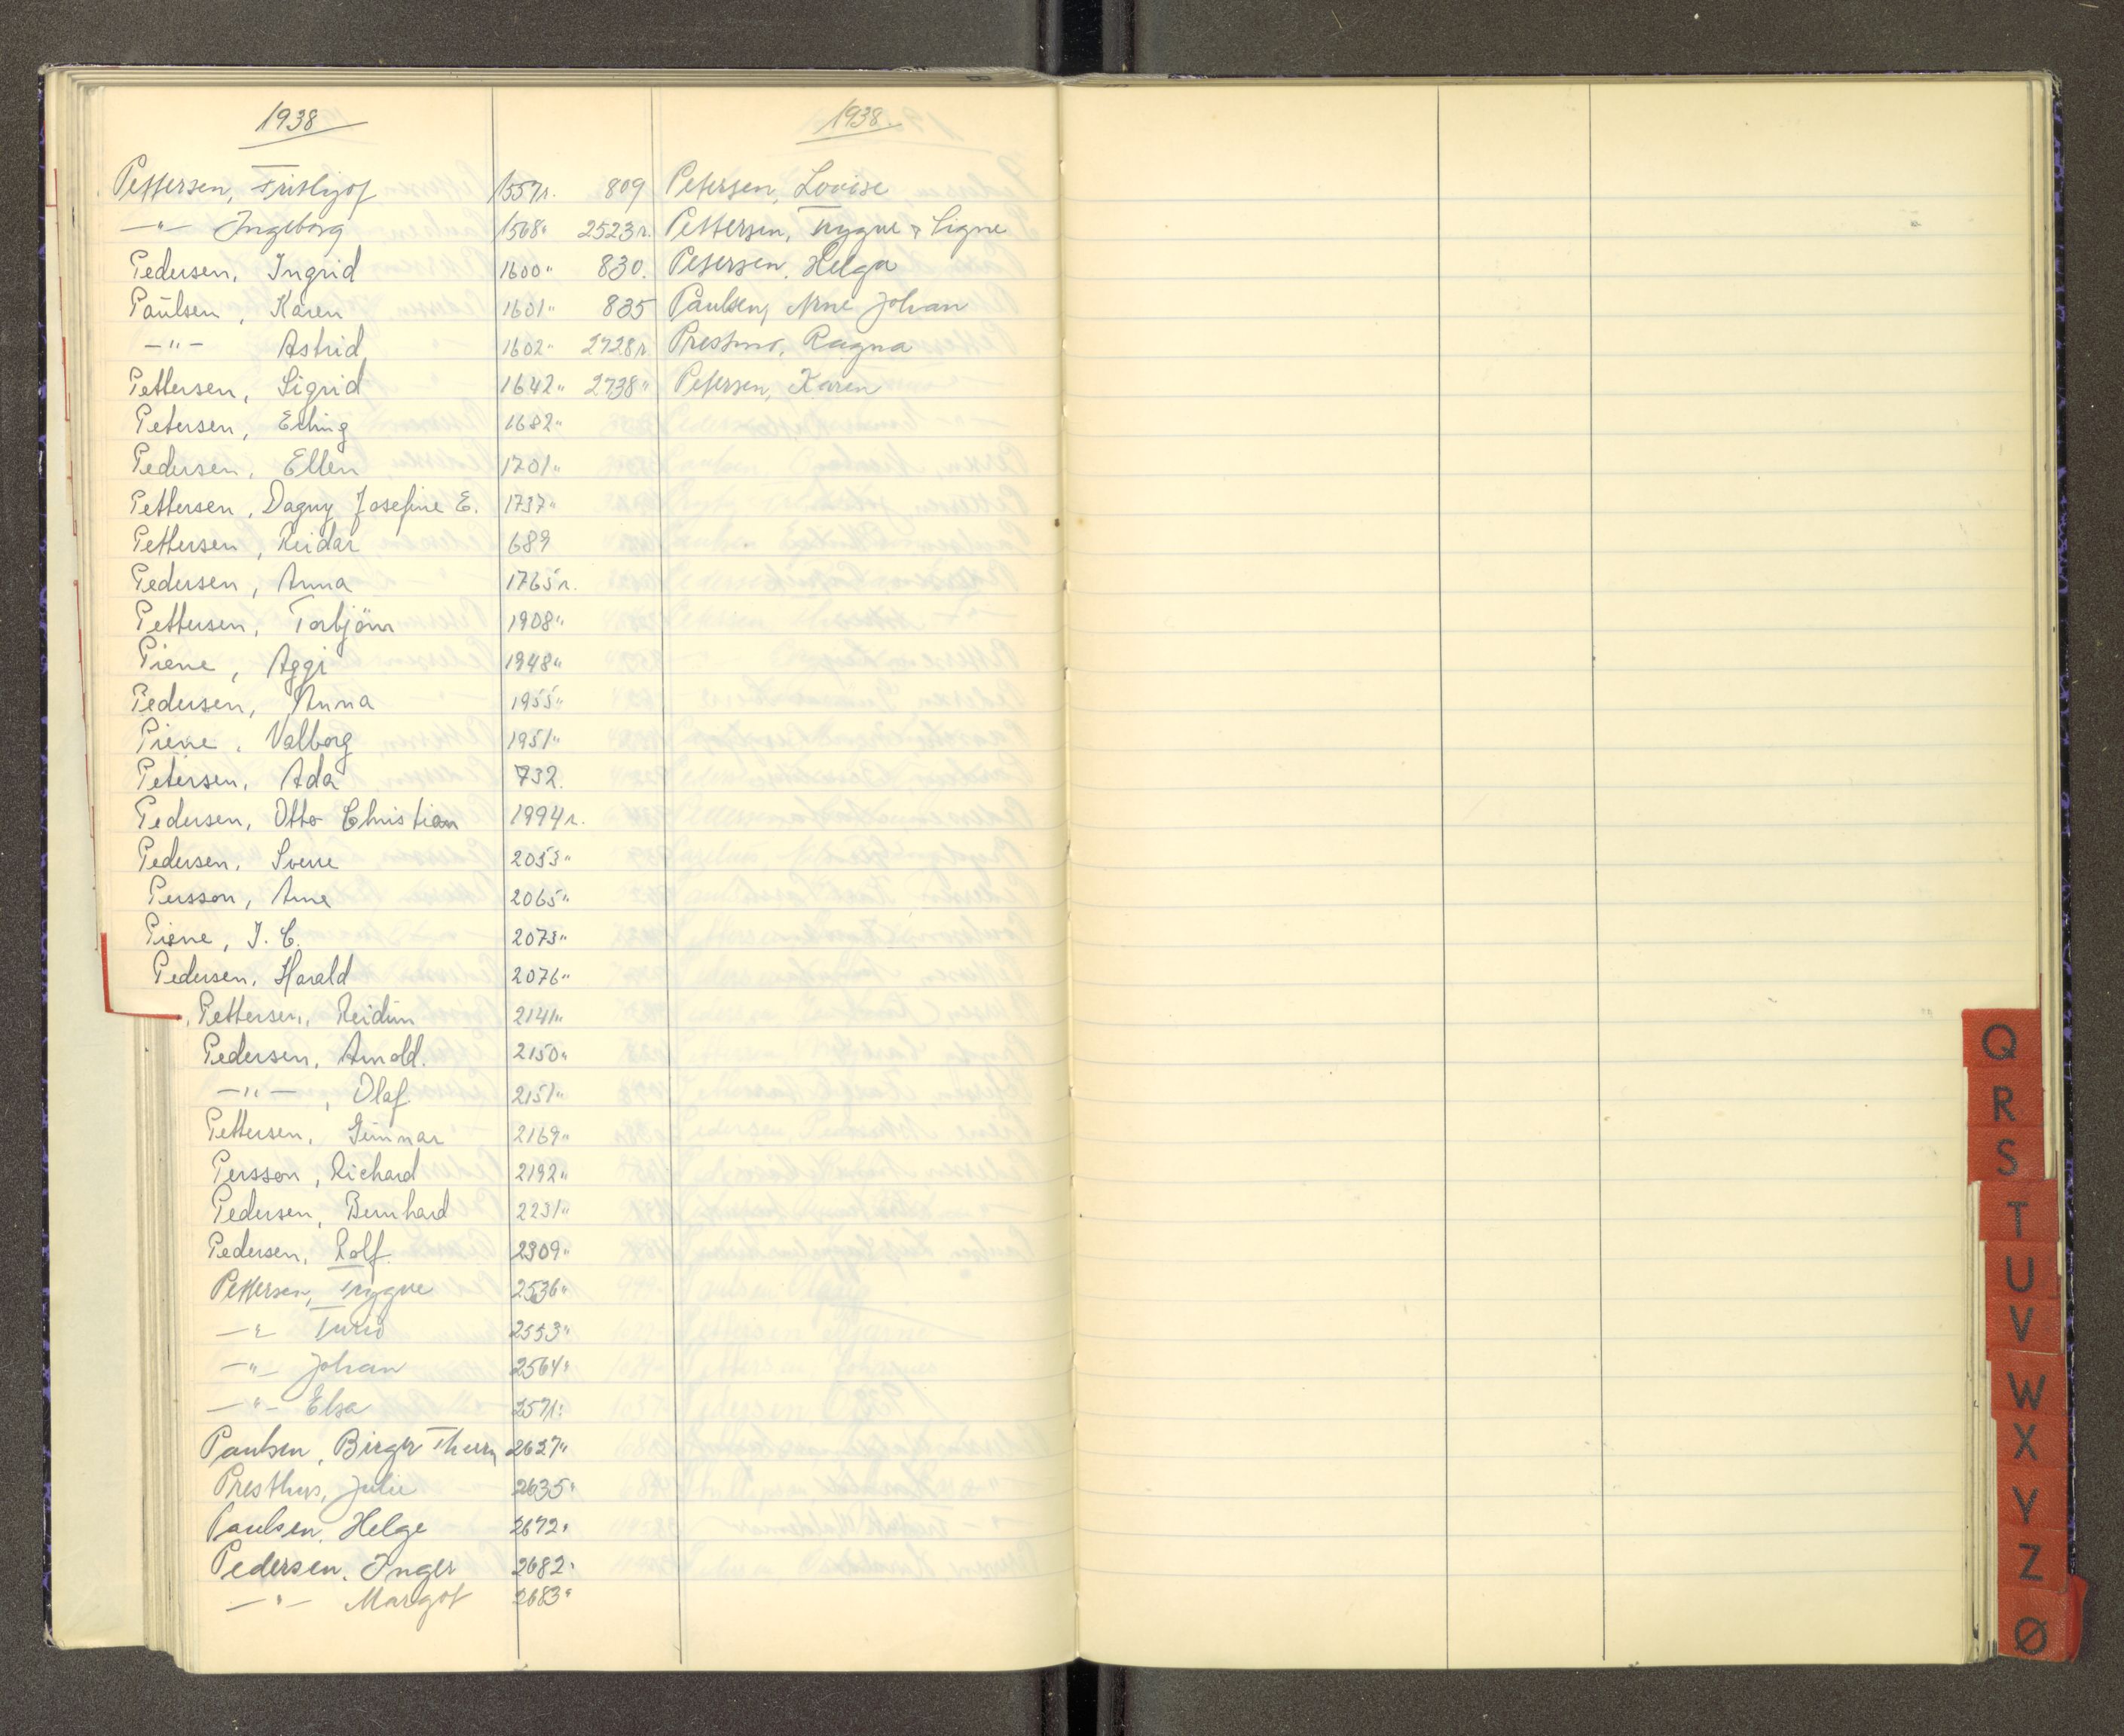 1938
Pettersen, FritHjof 1557r.
—"— Ingeborg 1568"
Pedersen, Ingrid 1600"
Paulsen, Karen 1601"
—"— Astrid 1602"
Pettersen, Sigrid 1642"
Petersen, Erling 1682"
Pedersen, Ellen 1701"
Pettersen, Dagny Josefine E. 1737"
Pettersen, Reidar 689
Pedersen, Anna 1765r.
Pettersen, Torbjörn 1908"
Piene, Aggi 1948"
Pedersen, Anna 1955"
Piene, Valborg 1951"
Petersen, Ada 732.
Pedersen, Otto Christian 1994r.
Pedersen, Sverre 2053"
Persson, Arne 2065"
Piene, J. C. 2073"
Pedersen, Harald 2076"
Pettersen, Reidun 2141"
Pedersen, Arnold. 2150"
—"—, Olaf 2151"
Pettersen, Gunnar 2169"
Persson, Richard 2192"
Pedersen, Bernhard 2231"
Pedersen, Rolf. 2309"
Pettersen, Trygve 2536"
—" Turid 2553"
—" Johan 2564"
—"— Elsa 2571"
Paulsen, Birger Thurn 2627"
Presthus, Julie 2635"
Paulsen, Helge 2672"
Pedersen, Inger 2682"
—"— Margot 2683"
1938.
809 Petersen, Lovise
2523r. Pettersen, Trygve & Signe
830. Petersen, Helga
835 Paulsen, Arne Johan
2728r. Prestmo, Ragna
2738" Petersen, Karen
Q
R
S
T
U
V
W
X
Y
Z
Ø